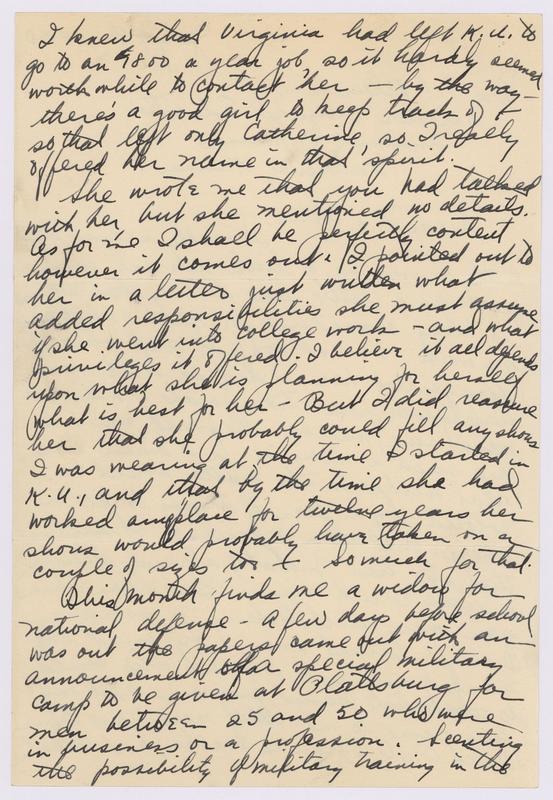 I knew that Virginia had left K.U. to
go to an $1800 a year job, so it hardly seemed
worth while to contact her — by the way —
there's a good girl to keep track of —
so that left only Catherine, so I really
offered her name in that spirit.
She wrote me that you had talked
with her, but she mentioned no details.
As for me I shall be perfectly content
however it comes out. I pointed out to
her in a letter just written what
added responsibilities she must assume
if she went into college work — and what
privileges it offered. I believe it all depends
upon what she is planning for herself
what is best for her — But I did reassure
her that she probably could fill any shoes
I was wearing at the time I started in
K.U., and that by the time she had
worked anyplace for twelve years her
shoes would probably have taken on a
couple of sizes too — So much for that.
This month finds me a widow for
national defense — a few days before school
was out the papers came out with an
announcement of a special military
camp to be given at Plattsburg for
men between 25 and 50 who were
in business or a profession. Scenting
the possibility of military training in the